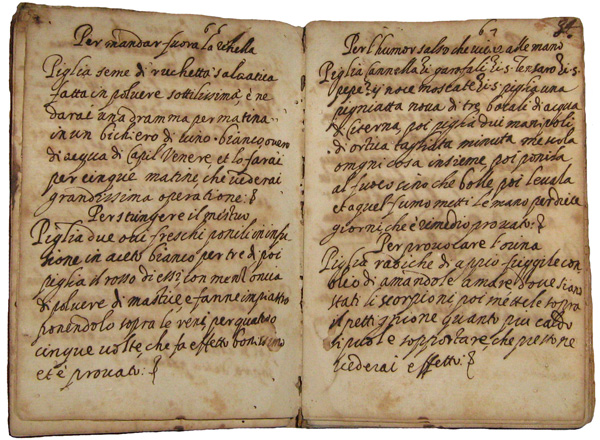 66
Per mandar fuora la renella
Piglia seme di ruchetta saluatica
fatta in poluere sottilissima, e ne
darai una dramma per matina
in un bichiero di uino bianco, ouero
di acqua di Capil Venere, et lo farai
per cinque matine, che uederai
grandissima operatione:
Per stringere il
Piglia due oui freschi ponili in infu
sione in aceto bianco per tre dì poi
piglia il rosso di essi con mezz oncia
di poluere di mastice e fanne impiastro
ponendolo sopra le reni per quatro o
cinque uolte che fa effetto bonissimo
et è prouato:
67
84
Per l'humor salso che uiene alle mano
Piglia Cannella garofali
pepe noce moscate piglia una
pegniatta noua di tre bocali di acqua
di Citerna, poi piglia dui manipoli
di ortica tagliata minuta mescola
omgni cosa insieme, poi ponila
al fuoco sino che bolle poi leuala
et a quel fumo metti le mano per diece
giorni, che è rimedio prouato:
Per prouocare l'orina
Piglia radiche di appio friggile con
oleo di amandole amare doue siano
stati li scorpioni poi mettile sopra
il pettignone quanto piu caldo
si puole sopportare, che presto ne
uederai effetto: